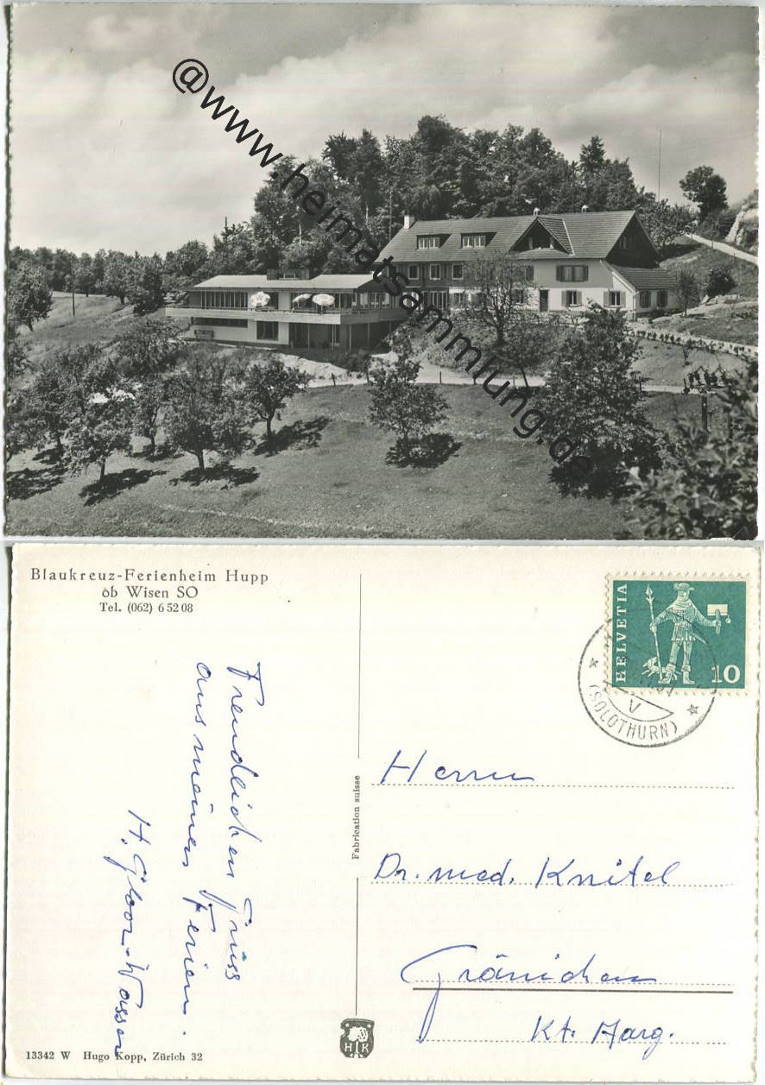 @www.heimatsammlung.de
Blaukreuz-Ferienheim Hupp
ob Wisen SO
Tel. (062) 6 52 08
HELVETIA
10
(SOLOTHURN)
Freundlichen Gruss
aus meinen Ferien.
H. Gloor-Wasser
Fabrication suisse
Herrn
Dr. med. Knitel
Gränichen
Kt. Aarg.
HK
13342 W Hugo Kopp, Zürich 32